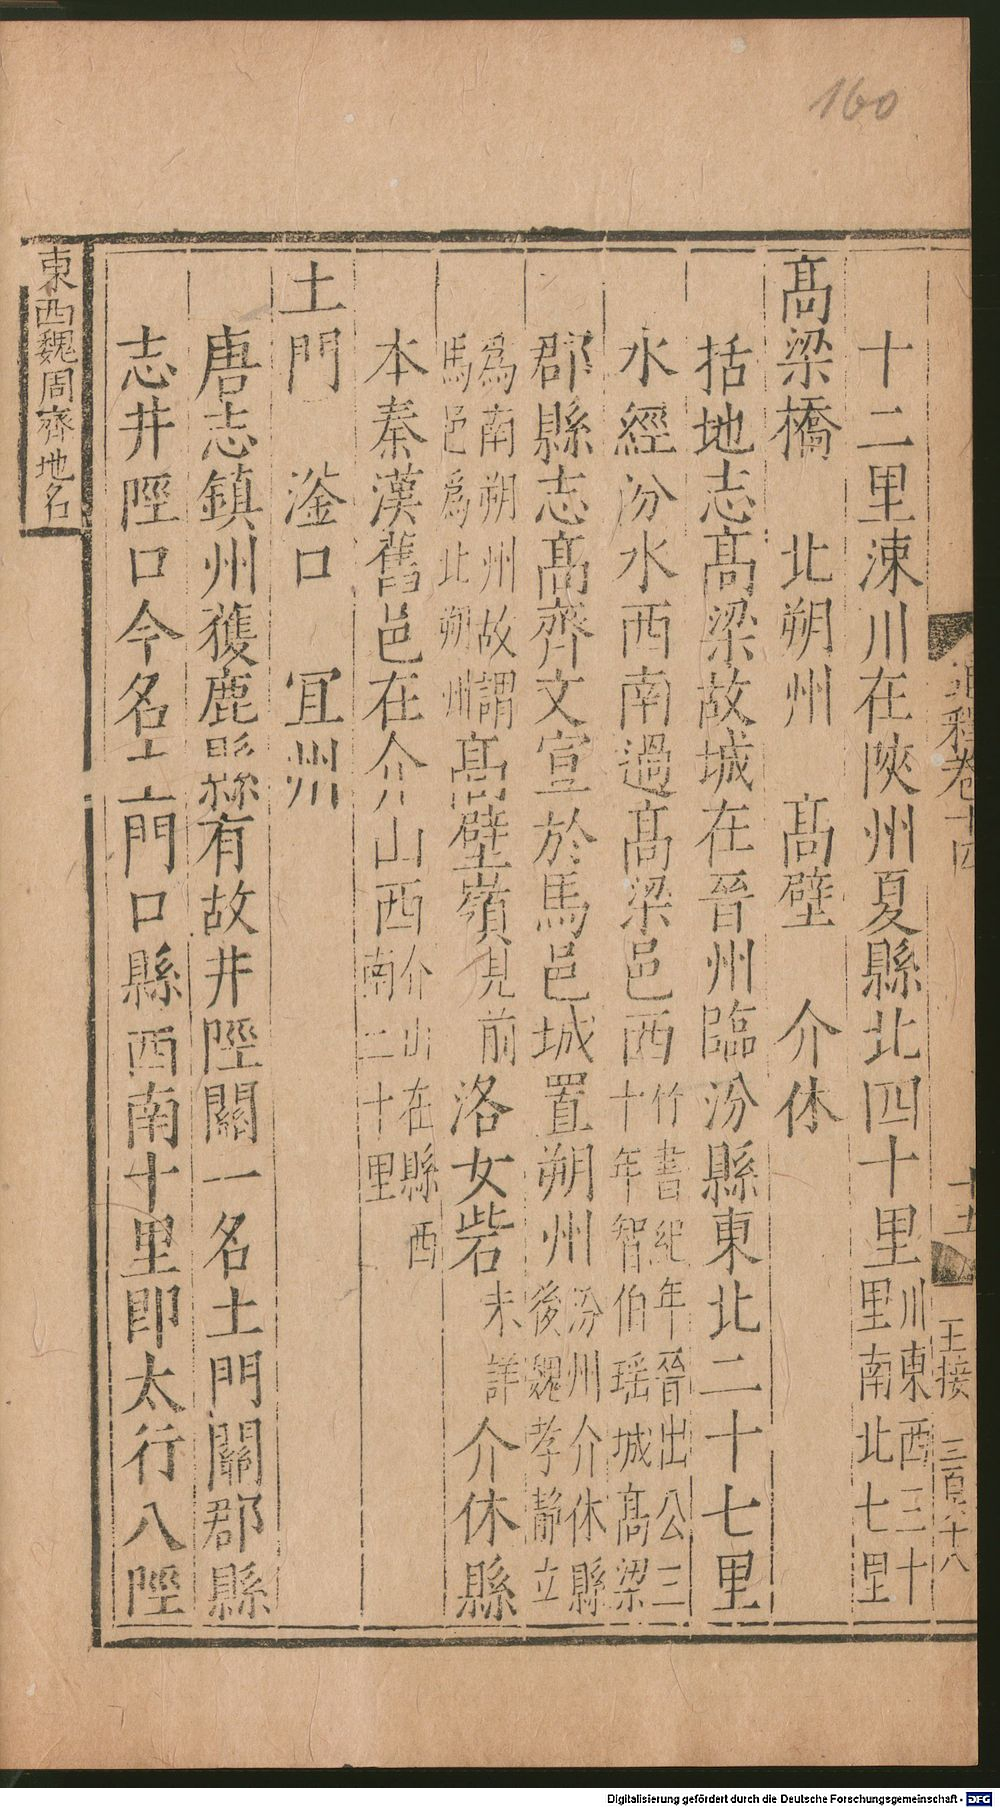 160
十二里涑川在陝州夏縣北四十里川東西三十里南北七里
高梁橋 北朔州 高壁 介休
括地志高梁故城在晉州臨汾縣東北二十七里
水經汾水西南過高梁邑西竹書紀年晉出公三十年智伯瑶城高梁
郡縣志高齊文宣於馬邑城置朔州汾州介休縣後魏孝靜立
爲南朔州故謂馬邑爲北朔州高壁嶺見前洛女砦未詳介休縣
本秦漢舊邑在介山西介山在縣西南二十里
土門 滏口 冝州
唐志鎮州獲鹿縣有故井陘關一名土門關郡縣
志井陘口今名土門口縣西南十里即太行八陘
東西魏周齊地名
通釋卷十四
十五
王接
三百八十八
Digitalisierung gefördert durch die Deutsche Forschungsgemeinschaft - DFG